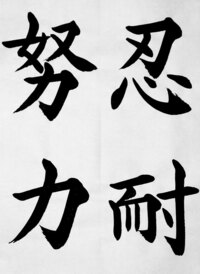 忍耐
努力